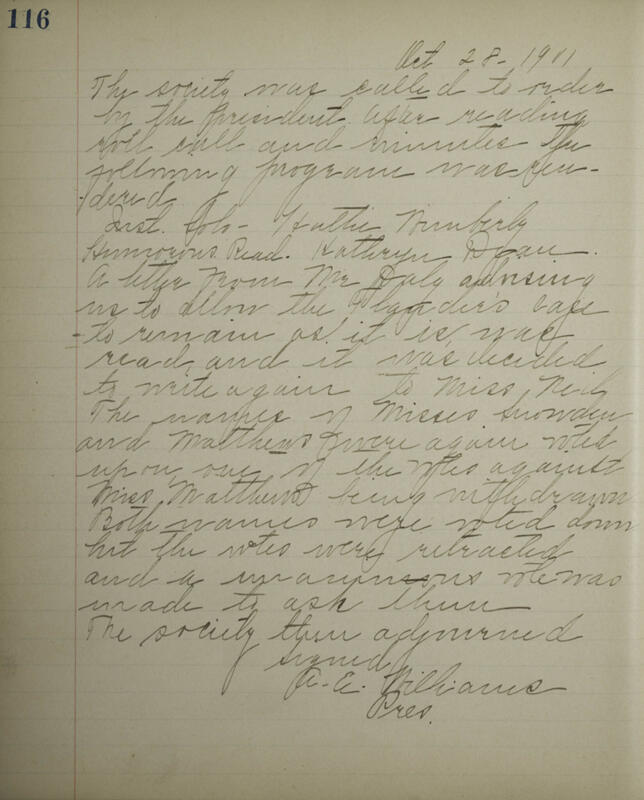 116
Oct 28 - 1911
The society was called to order
by the President. After reading
roll call and minutes the
following program was ren-
dered
Inst. Solo - Hattie Wimberly
Humorous Read. Kathryn Dean.
A letter from Mr Daly advising
us to allow the case
to remain as it is, was
read, and it was decided
to write again to Miss Neil
The names of Misses Snowden
and Matthews were again voted
upon, one of the votes against
Miss Matthews being withdrawn
Both names were voted down
but the votes were retracted
and a unanimous vote was
made to ask them
The society then adjourned
signed
A. E. Williams
Pres.